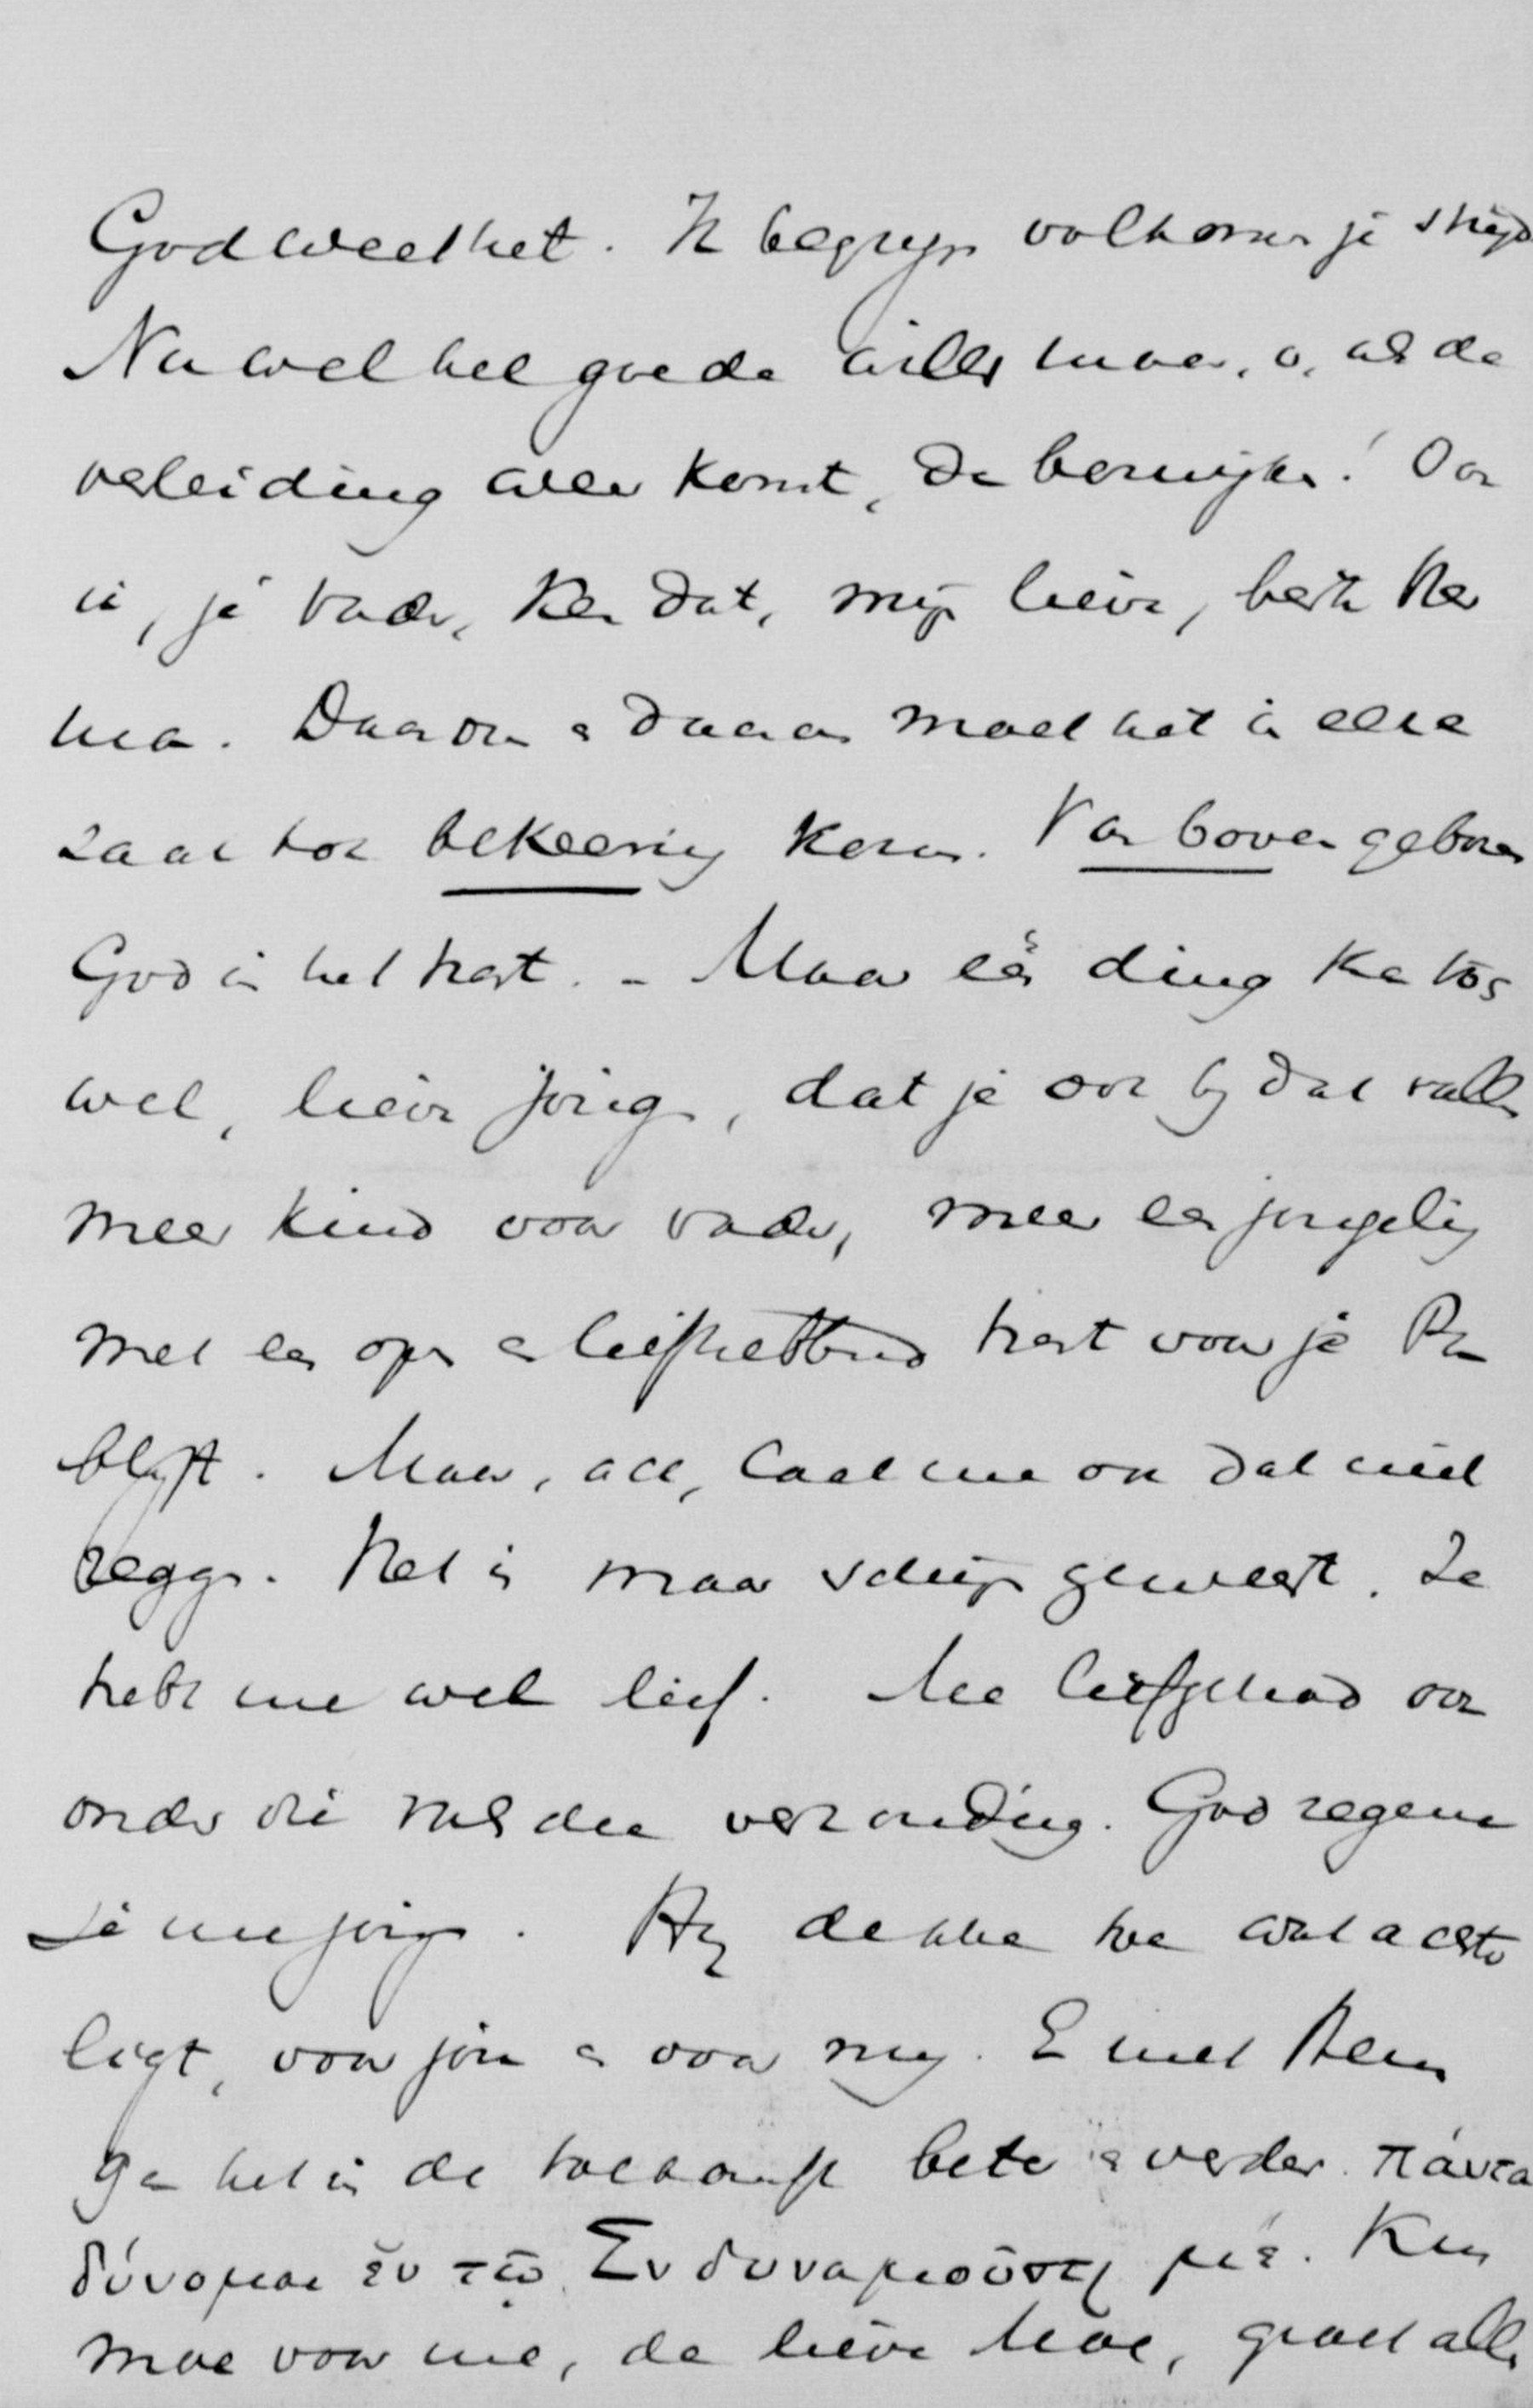 God weet het. Ik begrijp volkomen je strijd
Nu wel het goede willen maar, o, als de
verleiding weer komt, dan bezwijken! Ook
ik, je vader, ken dat, mijn lieve, beste Her
man. Daarom en daarom moet het in elke
zaak tot bekeering komen. Van boven geboren
God in het hart. - Maar één ding kan toch
wel, lieve jongen, dat je ook bij dat vallen
meer kind voor vader, meer een jongeling
met een open en liefhebbend hart voor je Pa
blijft. Maar, ach, laat me ook dat niet
zeggen. Het is maar schijn geweest. Je
hebt me wel lief. Me liefgehad ook
onder die valsche verhouding. God zegene
je mijn jongen. Hij dekke toe wat achter
ligt, voor jou en voor mij. En met Hem
ga het in de toekomst beter en verder. πάντα
δύναμαι ἐν τῷ Ἐνδυναμοῦντι με. Kus
moe voor me, de lieve Moe, groet alle